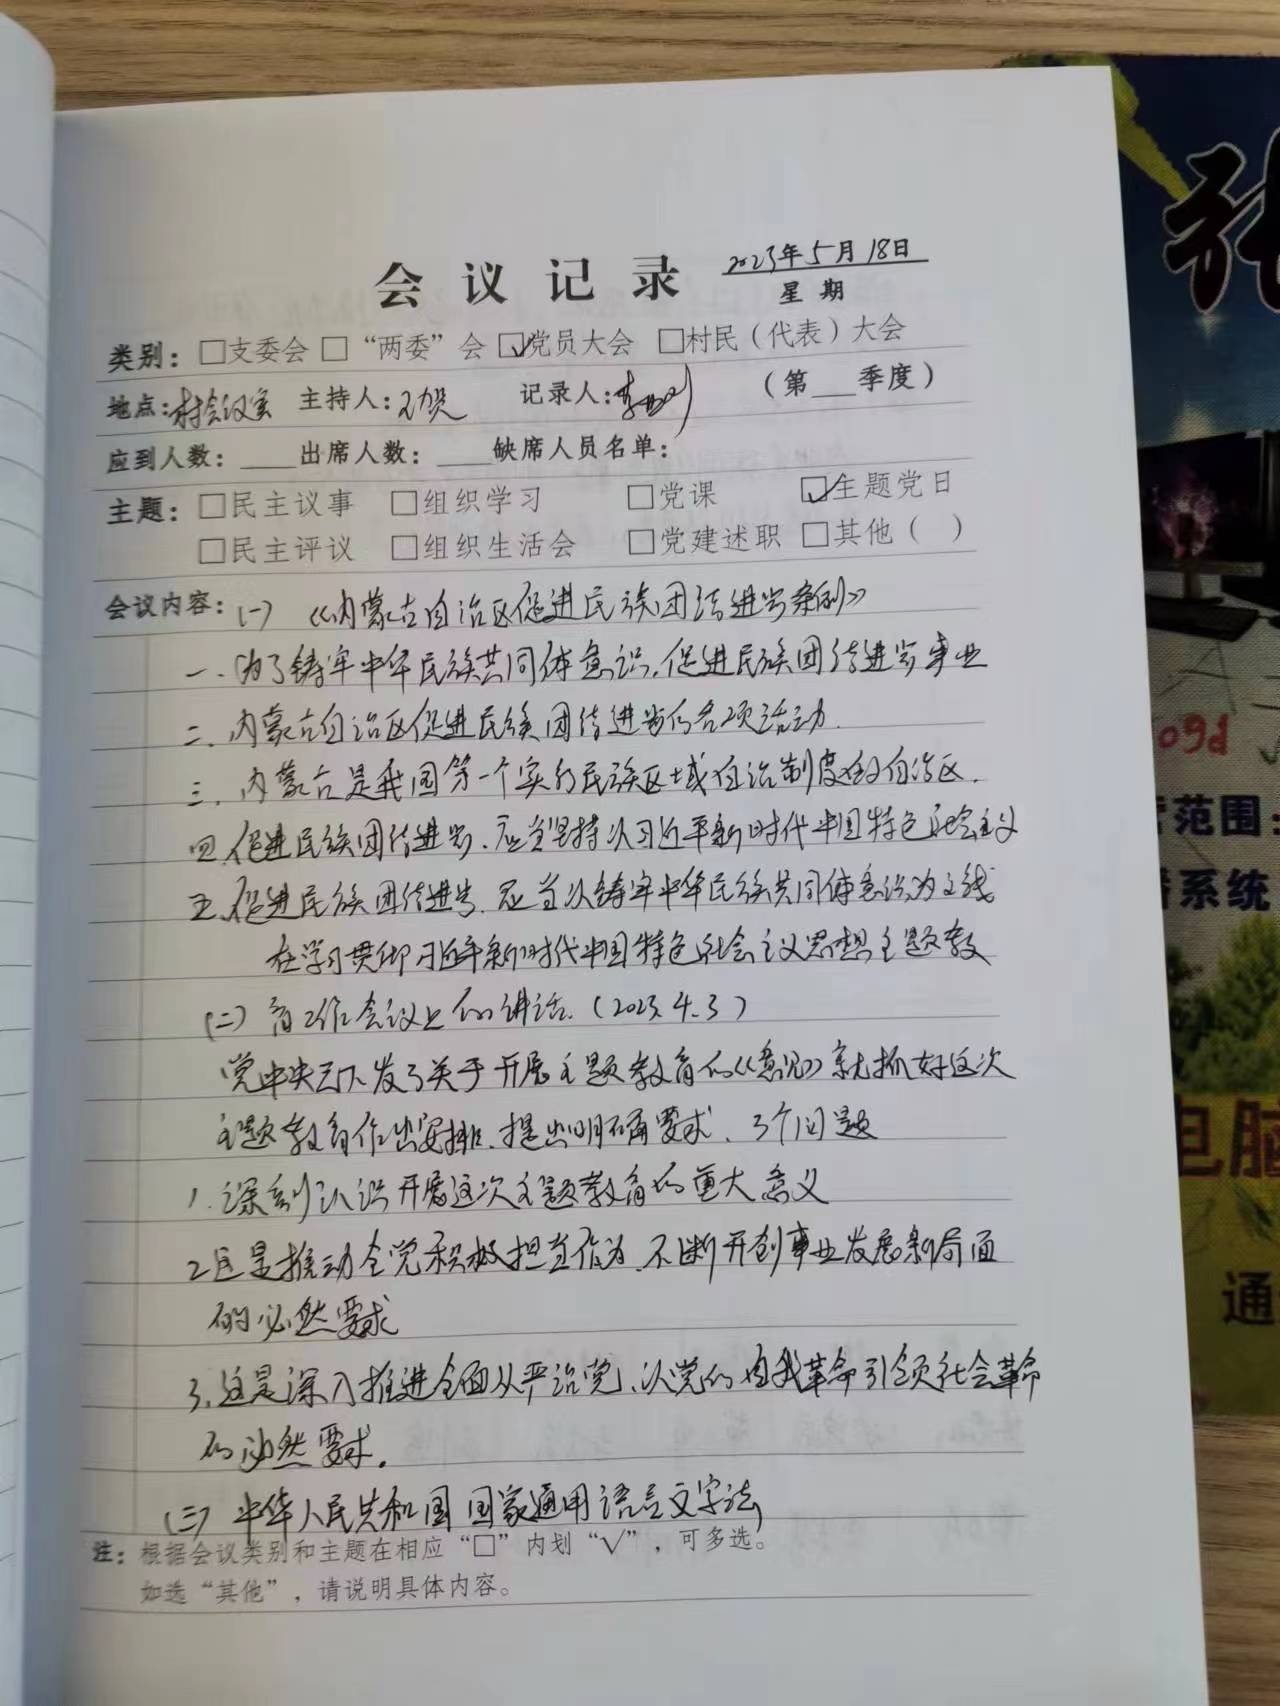 会议记录 2023年5月18日
星期
类别：□支委会 □“两委”会 ☑党员大会 □村民（代表）大会
地点：村会议室 主持人： 记录人： （第___季度）
应到人数：____出席人数：____缺席人员名单：
主题：□民主议事 □组织学习 □党课 ☑主题党日
□民主评议 □组织生活会 □党建述职 □其他（ ）
会议内容：（一）《内蒙古自治区促进民族团结进步条例》
一.为了铸牢中华民族共同体意识.促进民族团结进步事业
二.内蒙古自治区促进民族团结进步的各项活动.
三.内蒙古是我国第一个实行民族区域自治制度的自治区.
四.促进民族团结进步.应当坚持以习近平新时代中国特色社会主义
五.促进民族团结进步.应当以铸牢中华民族共同体意识为主线
在学习贯彻习近平新时代中国特色社会主义思想主题教
（二）育工作会议上的讲话.（2023.4.3）
党中央已下发了关于开展主题教育的《意见》就抓好这次
主题教育作出安排.提出明确要求、3个问题
1.深刻认识开展这次主题教育的重大意义
2.这是推动全党积极担当作为.不断开创事业发展新局面
的必然要求
3.这是深入推进全面从严治党、以党的自我革命引领社会革命
的必然要求.
（三）中华人民共和国国家通用语言文字法
注：根据会议类别和主题在相应“□”内划“√”，可多选。
如选“其他”，请说明具体内容。
范围：
系统
电脑
通